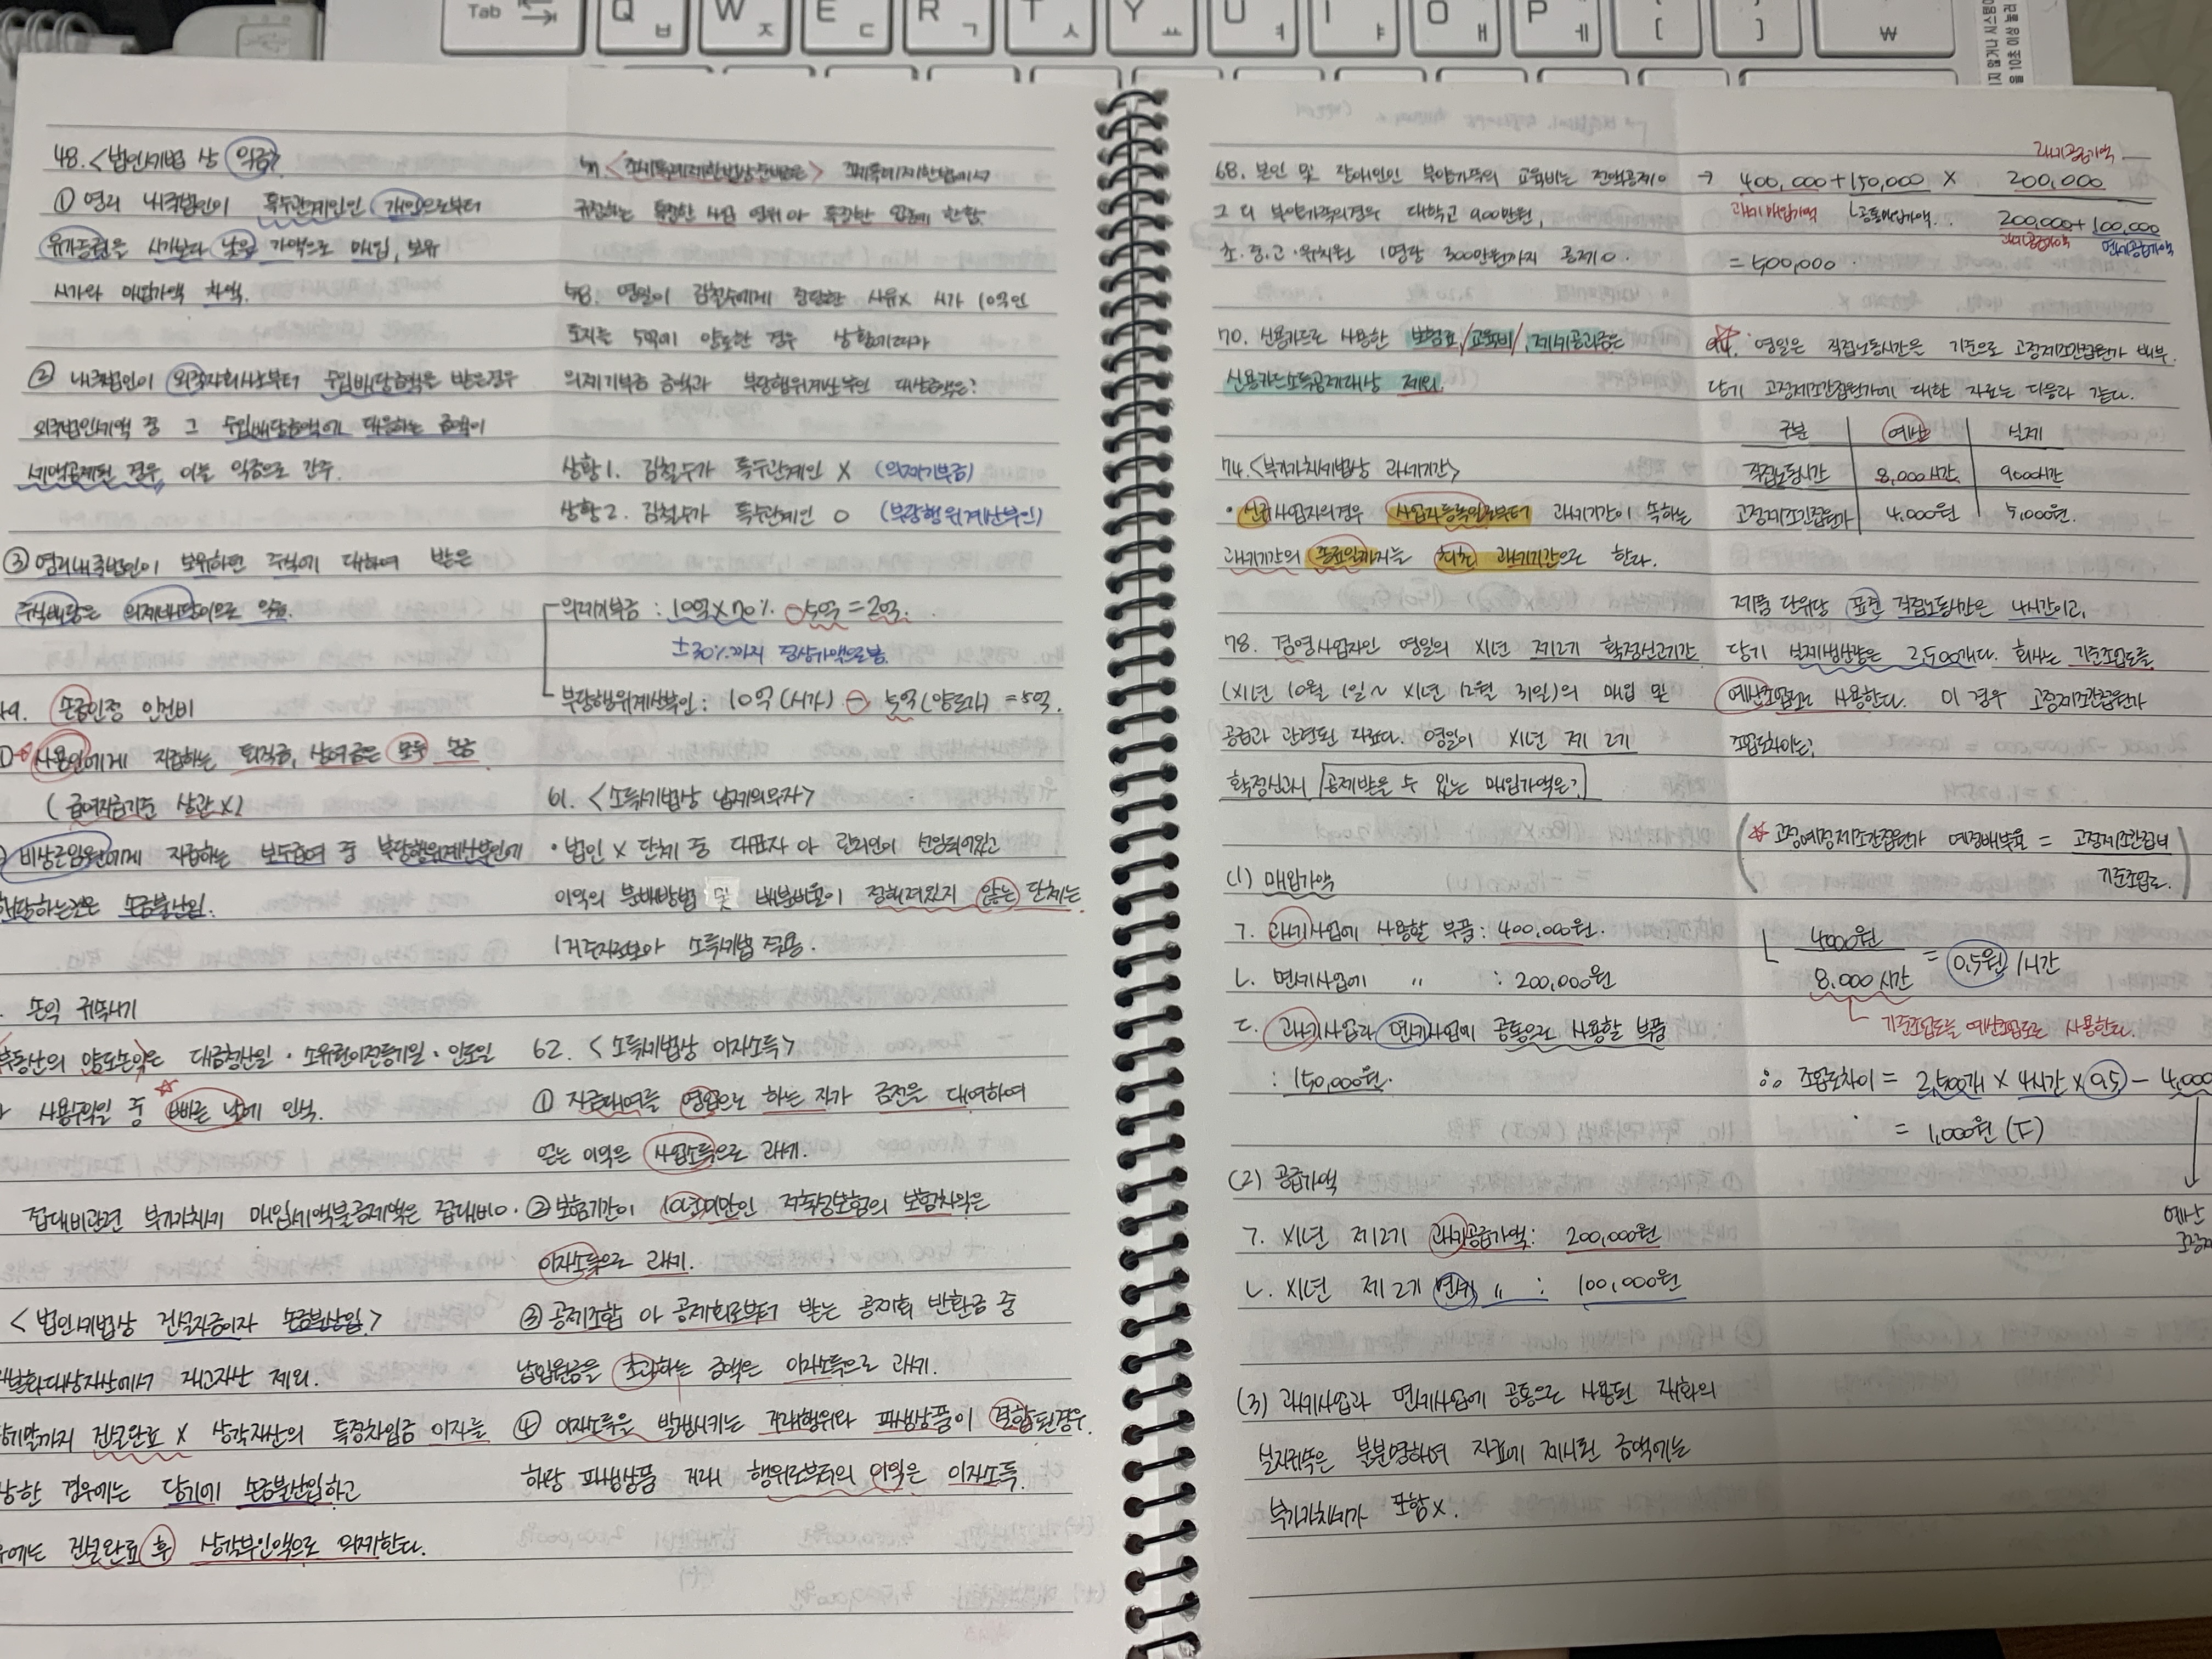 Tab
Q ㅂ
W ㅈ
E ㄷ
R ㄱ
T ㅅ
Y ㅛ
U ㅕ
I ㅑ
O ㅐ
P ㅔ
[
]
₩
48. <법인세법 상 익금>
① 영리 내국법인이 특수관계인인 개인으로부터
유가증권을 시가보다 낮은 가액으로 매입, 보유
시가와 매입가액 차액.
② 내국법인이 외국자회사로부터 수입배당금액을 받은경우
외국법인세액 중 그 수입배당금액에 대응하는 금액이
세액공제된 경우, 이를 익금으로 간주.
③ 영리내국법인이 보유하면 주식에 대하여 받은
주식배당은 의제배당이므로 익금.
49. 손금인정 인건비
사용인에게 지급하는 퇴직금, 상여금은 모두 손금
(급여지급기준 상관 X)
비상근임원에게 지급하는 보수급여 중 부당행위계산부인에
해당하는것은 손금불산입.
손익 귀속시기
부동산의 양도손익은 대금청산일·소유권이전등기일·인도일
사용수익일 중 빠른 날에 인식.
접대비관련 부가가치세 매입세액불공제액은 접대비 O.
<법인세법상 건설자금이자 손금불산입>
대상자산에서 재고자산 제외.
건설완료 X 상각자산의 특정차입금 이자를
경우에는 당기에 손금불산입하고
건설완료 후 상각부인액으로 의제한다.
<조세특례제한법상 준비금은> 조세특례제한법에서
규정하는 특정한 사업 영위 and 특정한 업종에 한함.
58. 영일이 김철수에게 정당한 사유X 시가 10억인
토지를 5억에 양도한 경우 상황에따라
의제기부금 금액과 부당행위계산부인 대상금액은?
상황1. 김철수가 특수관계인 X (의제기부금)
상황2. 김철수가 특수관계인 O (부당행위계산부인)
의제기부금 : 10억 × 70% - 5억 = 2억.
±30%까지 정상가액으로봄.
부당행위계산부인 : 10억 (시가) - 5억 (양도가) = 5억.
61. <소득세법상 납세의무자>
• 법인 X 단체 중 대표자 or 관리인이 선임되어있고
이익의 분배방법 및 분배비율이 정해져있지 않는 단체는
1거주자로보아 소득세법 적용.
62. <소득세법상 이자소득>
① 자금대여를 영업으로 하는 자가 금전을 대여하여
얻는 이익은 사업소득으로 과세.
② 보험기간이 10년미만인 저축성보험의 보험차익은
이자소득으로 과세.
③ 공제조합 or 공제회로부터 받는 공제회 반환금 중
납입원금을 초과하는 금액은 이자소득으로 과세.
④ 이자소득을 발생시키는 거래행위와 파생상품이 결합된경우
해당 파생상품 거래 행위로부터의 이익은 이자소득.
68. 본인 및 장애인인 부양가족의 교육비는 전액공제 O
그 외 부양가족의경우 대학교 900만원,
초·중·고·유치원 1명당 300만원까지 공제 O.
70. 신용카드로 사용한 보험료/교육비/제세공과금은
신용카드소득공제대상 제외.
74. <부가가치세법상 과세기간>
• 신규사업자의경우 사업자등록일로부터 과세기간이 속하는
과세기간의 종료일까지는 최초 과세기간으로 한다.
78. 겸영사업자인 영일의 X1년 제2기 확정신고기간
(X1년 10월 1일 ~ X1년 12월 31일)의 매입 및
공급과 관련된 자료다. 영일이 X1년 제 2기
확정신고시 공제받을 수 있는 매입가액은?
(1) 매입가액
ㄱ. 과세사업에 사용할 부품 : 400,000원.
ㄴ. 면세사업에 〃 : 200,000원
ㄷ. 과세사업과 면세사업에 공통으로 사용할 부품
: 150,000원.
(2) 공급가액
ㄱ. X1년 제2기 과세공급가액 : 200,000원
ㄴ. X1년 제 2기 면세 〃 : 100,000원
(3) 과세사업과 면세사업에 공통으로 사용된 재화의
실지귀속은 불분명하며 자료에 제시된 금액에는
부가가치세가 포함 X.
과세공급가액
→ 400,000 + 150,000 × 200,000
과세매입가액 공통매입가액. 200,000 + 100,000
과세공급가액 면세공급가액
= 500,000
94. 영일은 직접노동시간을 기준으로 고정제조간접원가 배부.
당기 고정제조간접원가에 대한 자료는 다음과 같다.
구분 예산 실제
직접노동시간 8,000시간 9000시간
고정제조간접원가 4,000원 5,000원.
제품 단위당 표준 직접노동시간은 4시간이고,
당기 실제생산량은 2,500개다. 회사는 기준조업도를
예산조업도로 사용한다. 이 경우 고정제조간접원가
조업도차이는?
고정예정제조간접원가 예정배부율 = 고정제조간접비
기준조업도.
4000원
8,000 시간 = 0.5원 /시간
기준조업도를 예산조업도로 사용한다.
∴ 조업도차이 = 2,500개 × 4시간 × 0.5 - 4,000
= 1,000원 (F)
예산